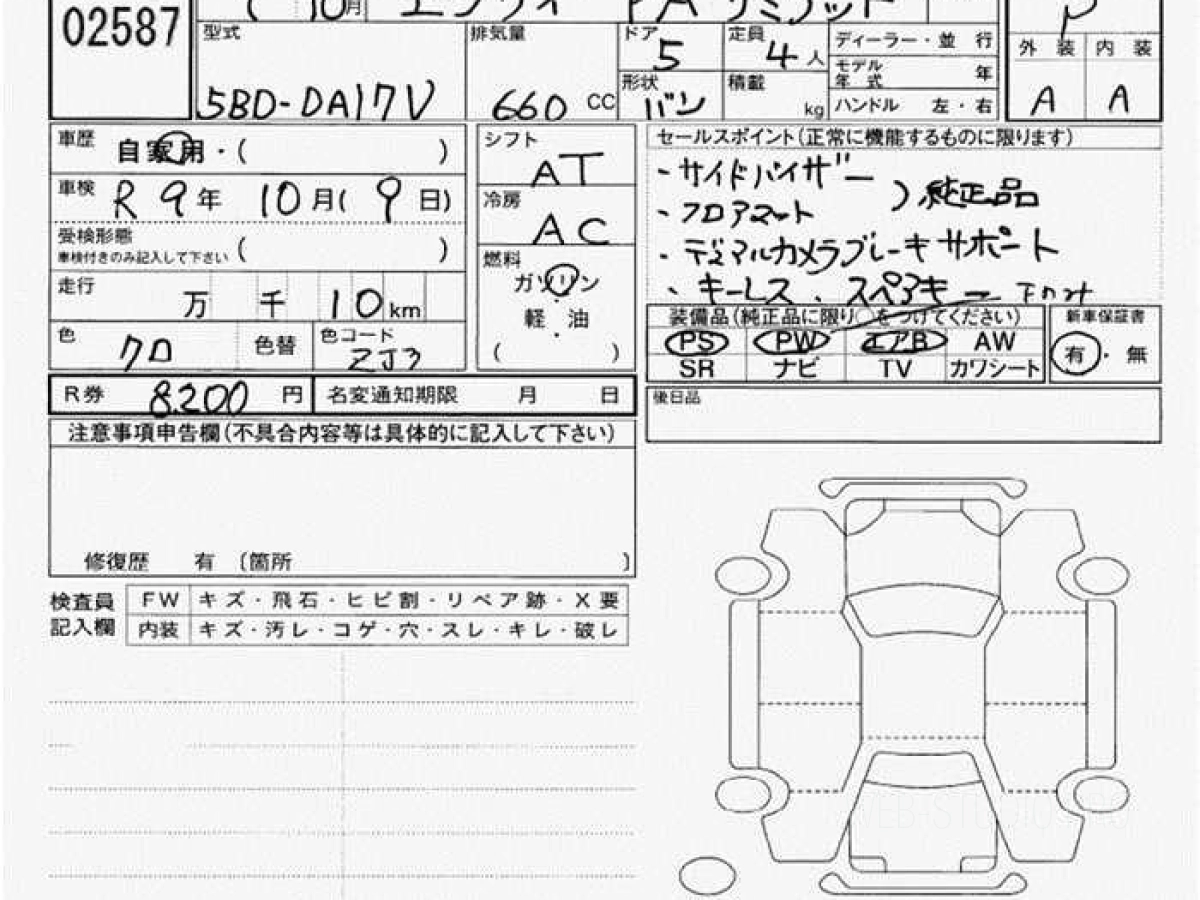 02587
10月 エブリイ PAリミテッド
型式 排気量 ドア 5 定員 4 人 ディーラー・並 行
モデル年式 年
外 装 内 装
5BD-DA17V 660 CC 形状 バン 積載 kg ハンドル 左・右
A A
車歴 自家用・( )
シフト AT
セールスポイント(正常に機能するものに限ります)
・サイドバイザー
・フロアマット ) 純正品
・デュアルカメラブレーキサポート
・キーレス、スペアキー
車検 R 9年 10月( 9日)
冷房 AC
受検形態
車検付きのみ記入して下さい ( )
燃料 ガソリン
軽・油
( )
走行 万 千 10 km
色 クロ 色替 色コード ZJ3
装備品(純正品に限り○をつけてください)
PS PW エアB AW
SR ナビ TV カワシート
新車保証書
有・無
R券 8,200 円 名変通知期限 月 日
後日品
注意事項申告欄(不具合内容等は具体的に記入して下さい)
修復歴 有 〔箇所 〕
検査員記入欄
FW キズ・飛石・ヒビ割・リペア跡・X要
内装 キズ・汚レ・コゲ・穴・スレ・キレ・破レ